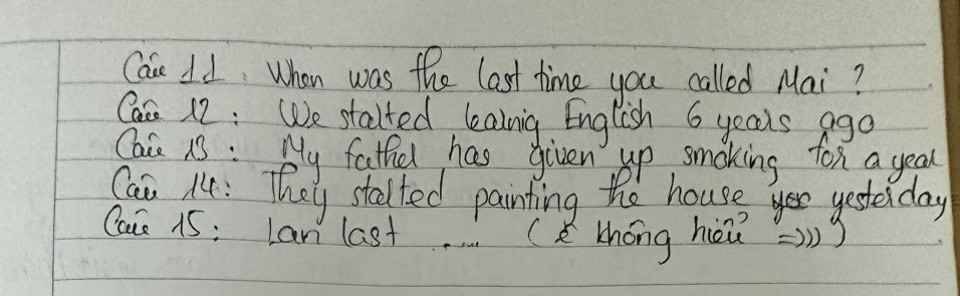 Câu 11: When was the last time you called Mai ?
Câu 12 : We started learnig English 6 years ago
Câu 13 : My father has given up smoking for a year
Câu 14 : They started painting the house yes yesterday
Câu 15 : Lan last ..... ( e không hiểu =))) )